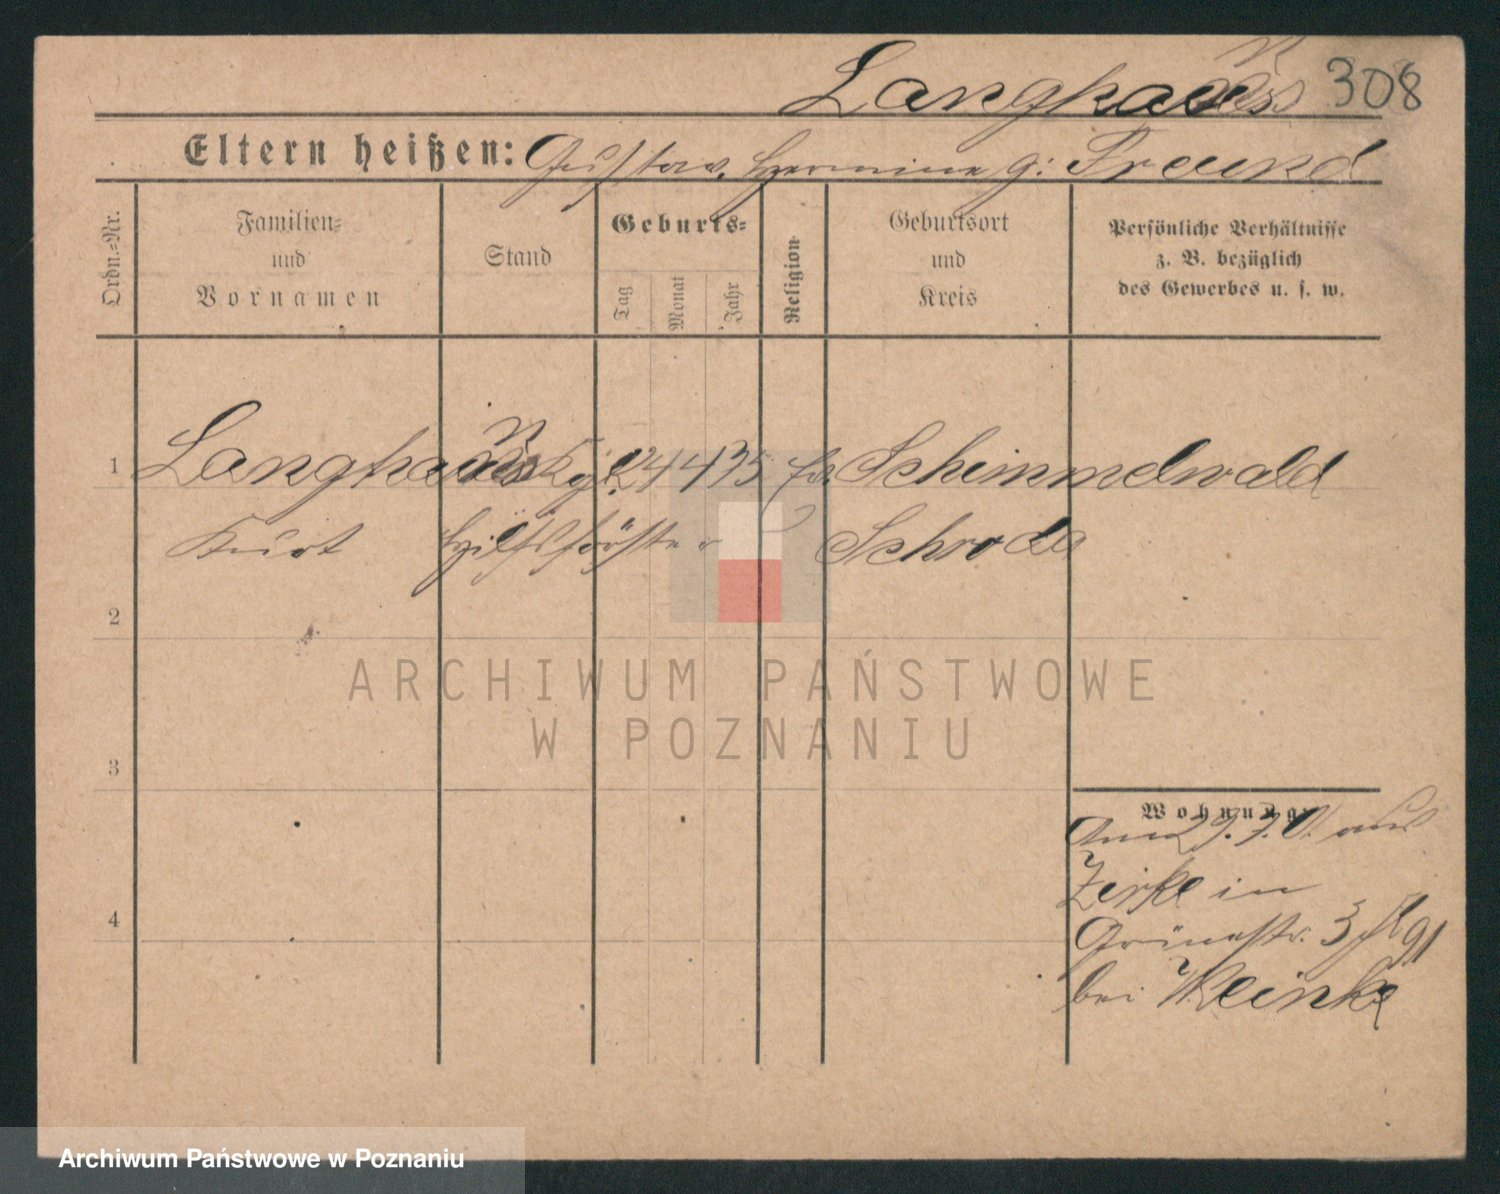 308
Eltern heißen: Gustav, Hermine g: Freund
Ordn.=Nr.
Familien=
und
Vornamen
Stand
Geburts=
Tag
Monat
Jahr
Religion
Geburtsort
und
Kreis
Persönliche Verhältnisse
z. B. bezüglich
des Gewerbes u. s. w.
1 Kgl. 24 4 75 Schimmelwald
Kurt Hilfsförster Schroda
2
ARCHIWUM PAŃSTWOWE
W POZNANIU
3
Wohnung:
aus
Zirke in
Grünestr. 3
bei
4
Archiwum Państwowe w Poznaniu